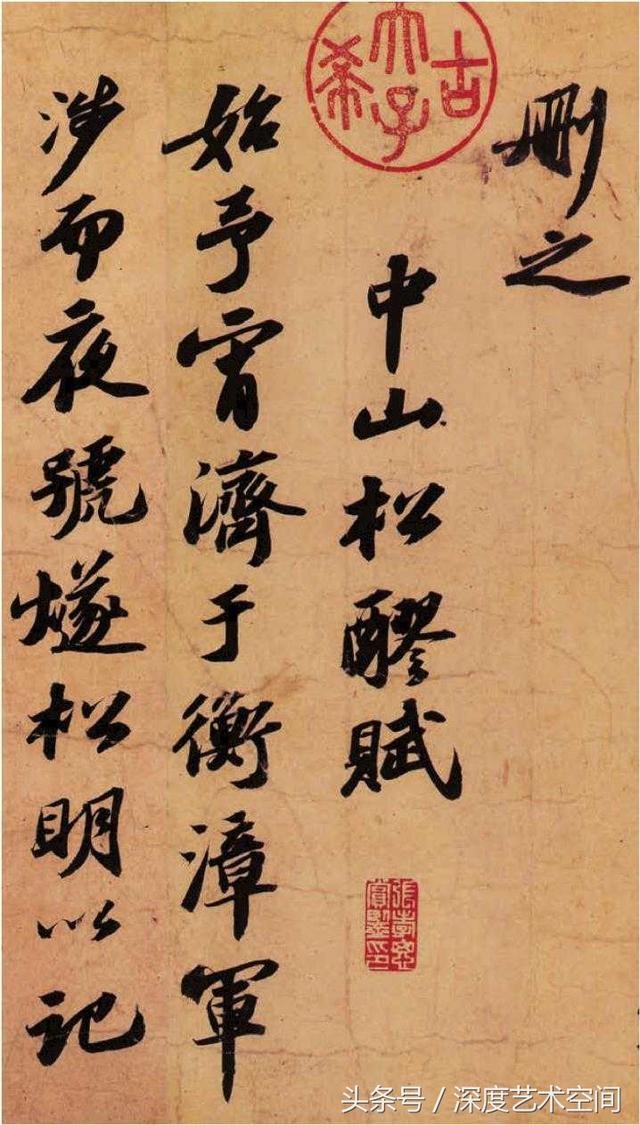 删之
中山松醪賦
始予宵濟于衡漳軍
涉而夜號燧松明以記
古希天子
張孝思賞鑒印
头条号 / 深度艺术空间